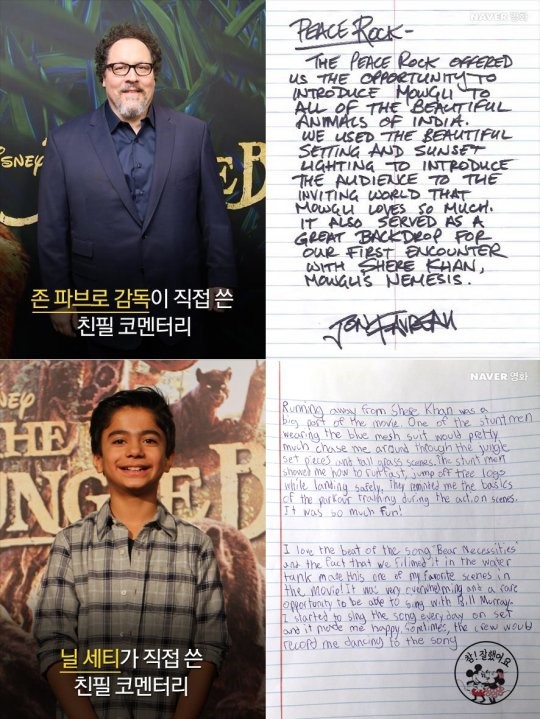 SNEY
존 파브로 감독이 직접 쓴
친필 코멘터리
NAVER 영화
PEACE ROCK-
THE PEACE ROCK OFFERED
US THE OPPORTUNITY TO
INTRODUCE MOWGLI TO
ALL OF THE BEAUTIFUL
ANIMALS OF INDIA.
WE USED THE BEAUTIFUL
SETTING AND SUNSET
LIGHTING TO INTRODUCE
THE AUDIENCE TO THE
INVITING WORLD THAT
MOWGLI LOVES SO MUCH.
IT ALSO SERVED AS A
GREAT BACKDROP FOR
OUR FIRST ENCOUNTER
WITH SHERE KHAN,
MOWGLI'S NEMESIS.
JON FAVREAU
NEY
THE
UNGLE B
닐 세티가 직접 쓴
친필 코멘터리
NAVER 영화
Running away from Shere Khan was a
big part of the movie. One of the stuntmen
wearing the blue mesh suit would pretty
much chase me around through the jungle
set pieces and tall grass scenes. The stunt men
showed me how to run fast, jump off tree logs
while landing safely. They reminded me the basics
of the parkour training during the action scenes.
It was so much fun!
I love the beat of the song 'Bear Necessities'
and the fact that we filmed it in the water
tank made this one of my favorite scenes in
the movie! It was very overwhelming and a rare
opportunity to be able to sing with Bill Murray.
I started to sing the song everyday on set
and it made me happy. Sometimes, the crew would
record me dancing to the song
참! 잘했어요